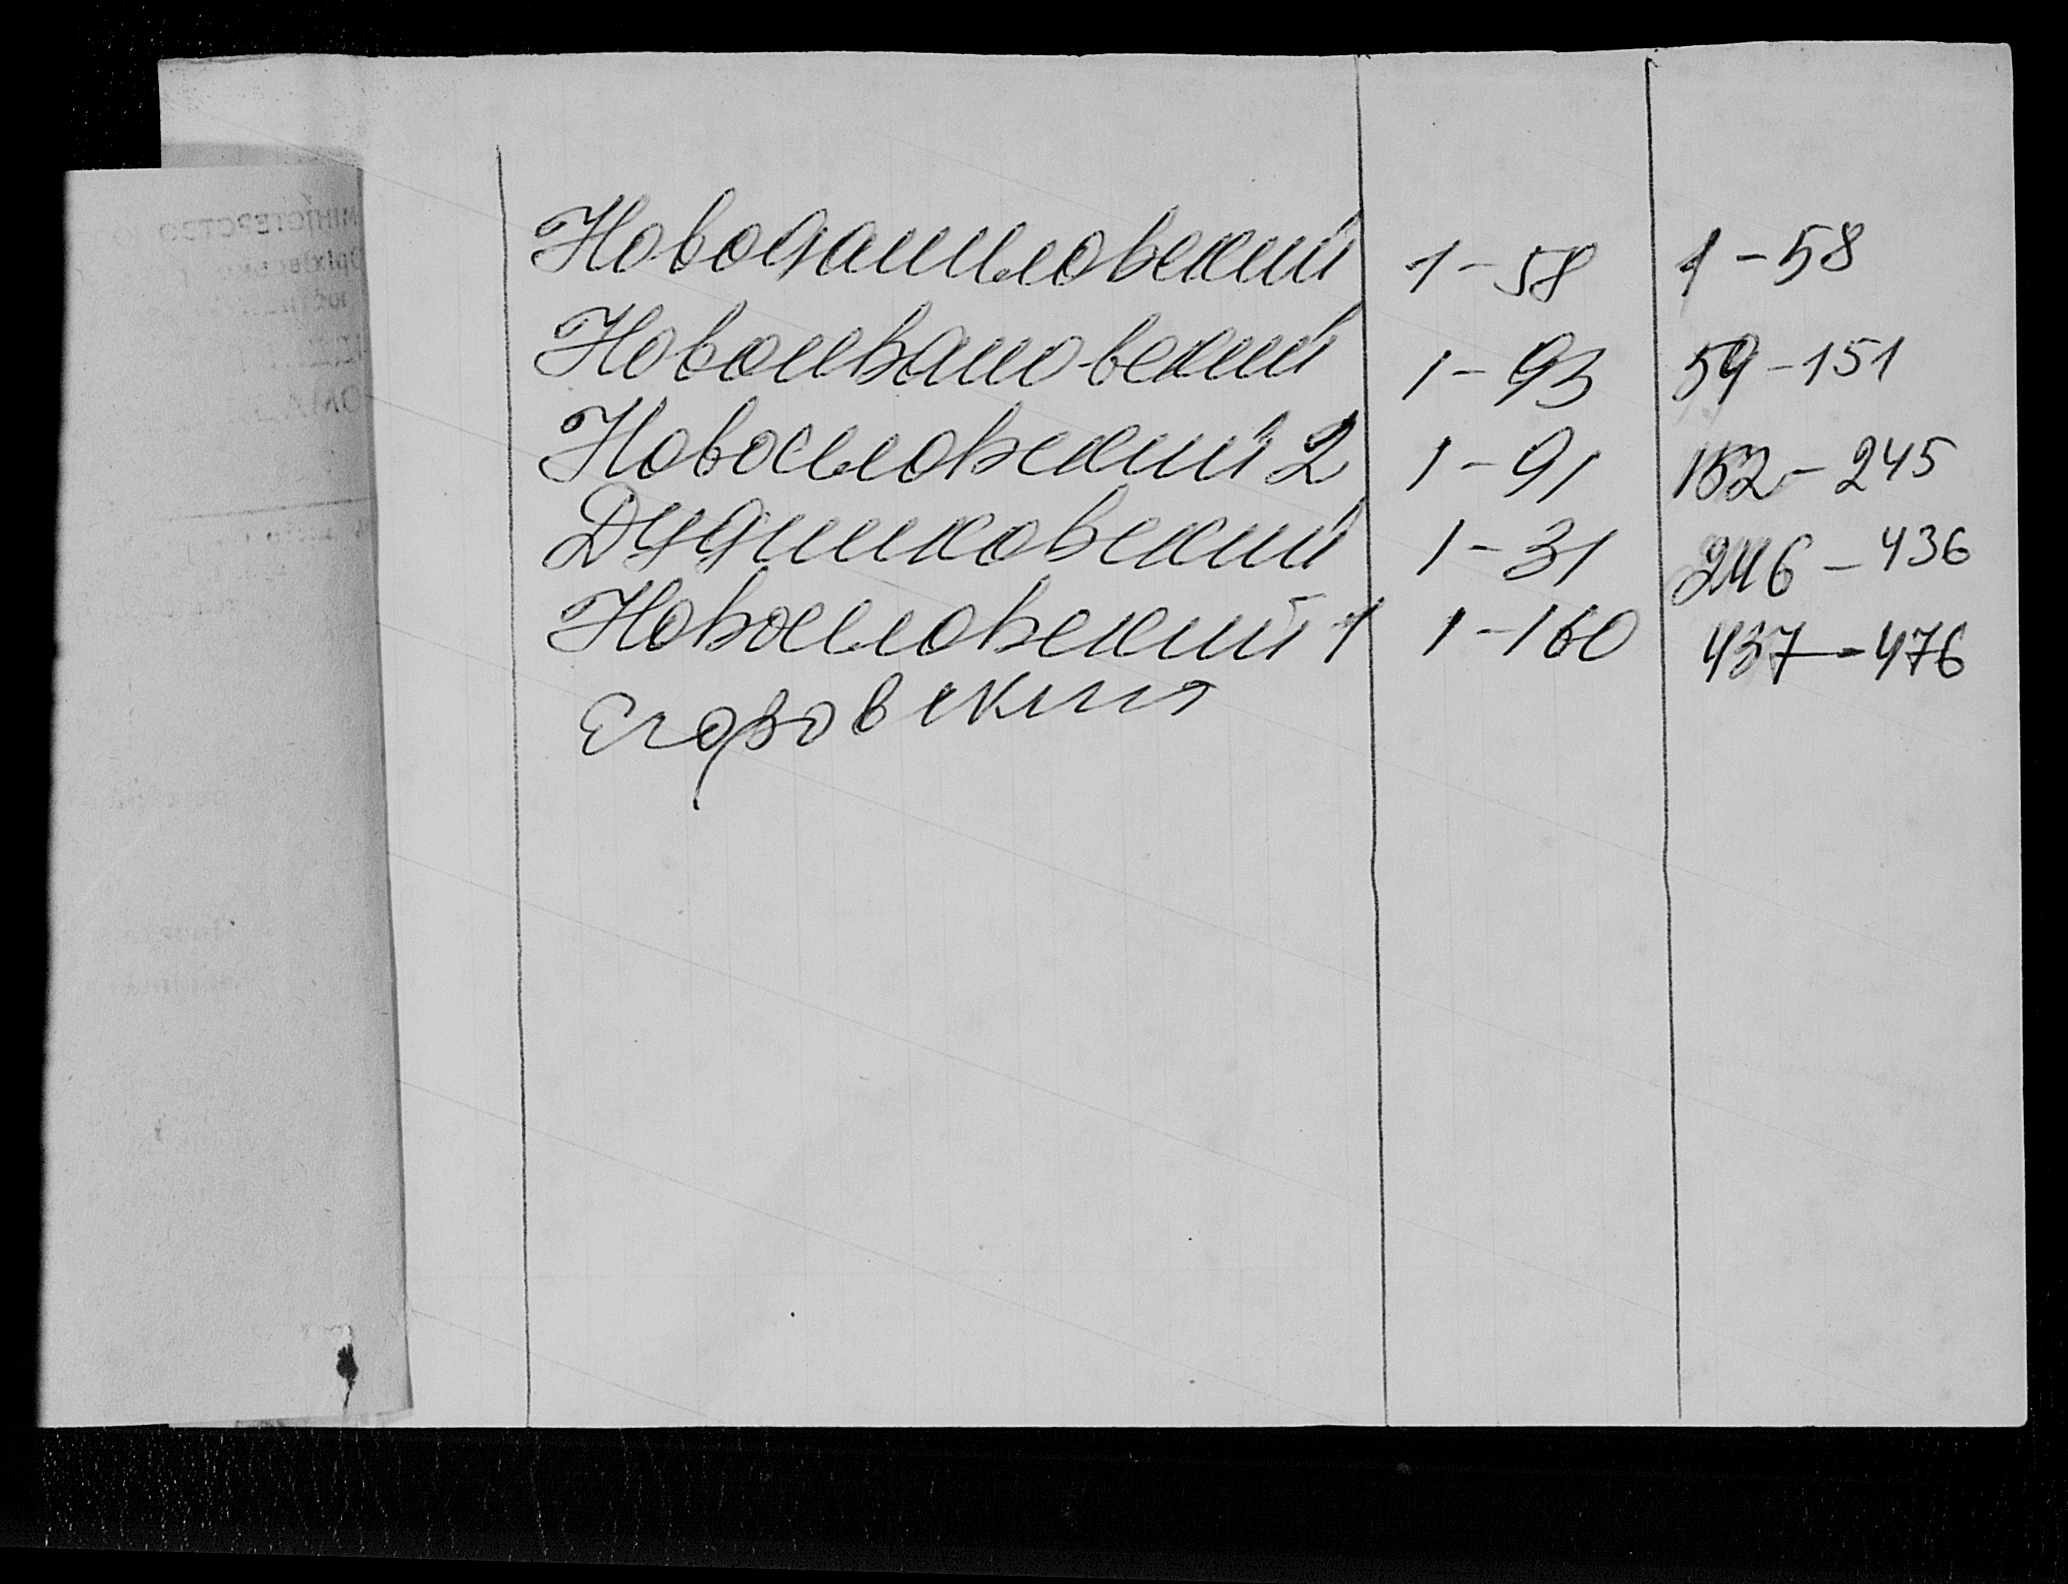 Новоданиловский 1-58 1-58
Новоивановский 1-93 59-151
Новоселовский 2 1-91 152-245
Дудниковский 1-31 246-436
Новоселовский 1 1-160 437-476
Егоровский
МІНІСТЕРСТВО Ю